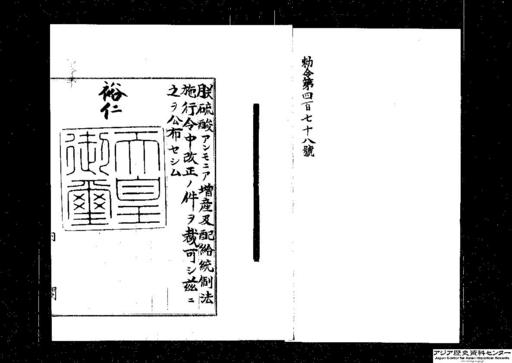 勅令第四百七十八號
朕硫酸アンモニア增產及配給統制法
施行令中改正ノ件ヲ裁可シ茲ニ
之ヲ公布セシム
裕仁
天皇
御璽
内閣
アジア歴史資料センター
Japan Center for Asian Historical Records